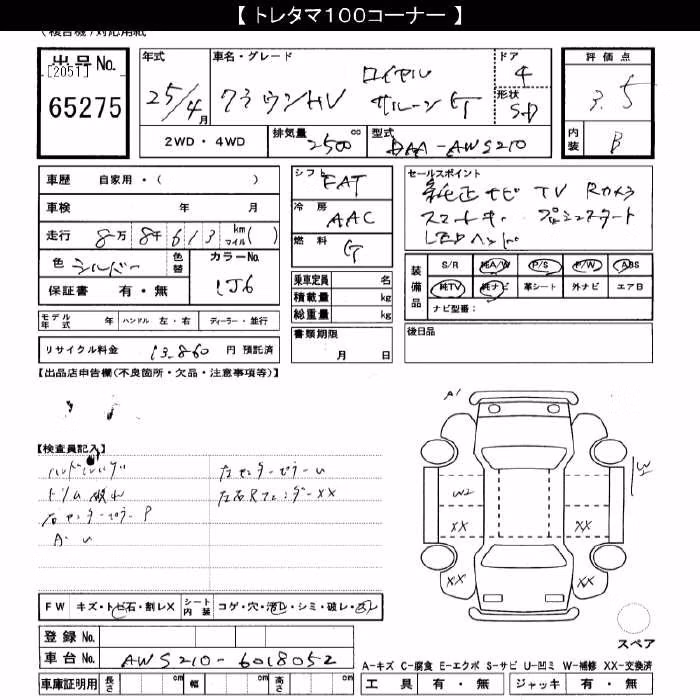 【 トレタマ100コーナー 】
出品 No.
[2051]
65275
年式
25/4月
車名・グレード
クラウンHV ロイヤル
サルーン G
ドア
4
形状
SD
評価点
3.5
内装
B
2WD・4WD
排気量
2500 cc
型式
DAA-AWS210
車歴 自家用・( )
車検 年 月
走行 8万 8千 613 km マイル( )
色 シルバー
色替
カラーNo.
1J6
保証書 有・無
シフト
FAT
冷房
AAC
燃料
G
乗車定員 名
積載量 kg
総重量 kg
セールスポイント
純正ナビ TV Rカメラ
スマートキー プッシュスタート
LEDヘッド
装備品
S/R 純A/W P/S P/W ABS
純TV 純ナビ 革シート 外ナビ エアB
ナビ型番：
モデル年式 年 ハンドル 左・右 ディーラー・並行
リサイクル料金 13,860 円 預託済
書類期限
月 日
後日品
【出品店申告欄(不良箇所・欠品・注意事項等)】
【検査員記入】
右センターピラー P
A・U
左センターピラー U
左右Rフェンダー XX
A1
W2
XX
XX
XX
XX
W
FW キズ・トビ石・割レX シート内装 コゲ・穴・汚レ・シミ・破レ・
スペア
登録 No.
車台 No. AWS210-6018052
車庫証明用 長さ cm 幅 cm 高さ cm
A-キズ C-腐食 E-エクボ S-サビ U-凹ミ W-補修 XX-交換済
工具 有・無 ジャッキ 有・無